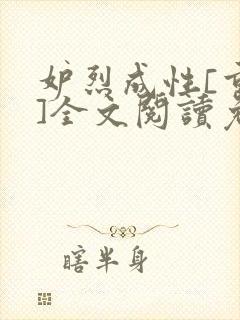 妒烈成性[
]全文閱讀
瞎半身